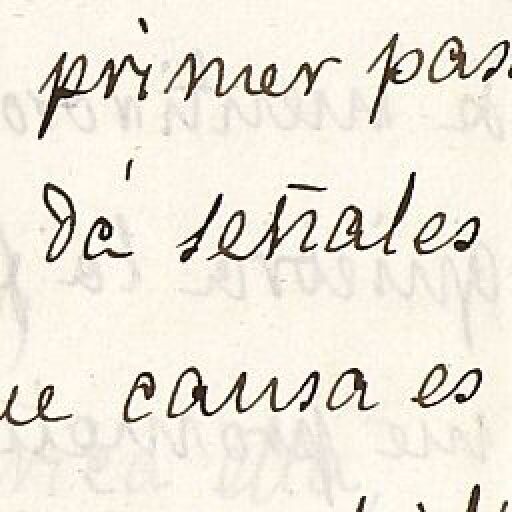 primer pas
dá señales
ue causa es